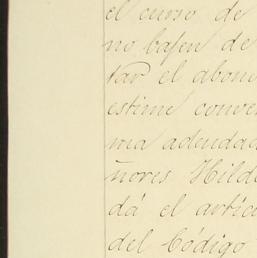 el curso de
no bajen de
tar el abon
estime conve
ma adeudad
ñores Hild
dá el artíc
del Código